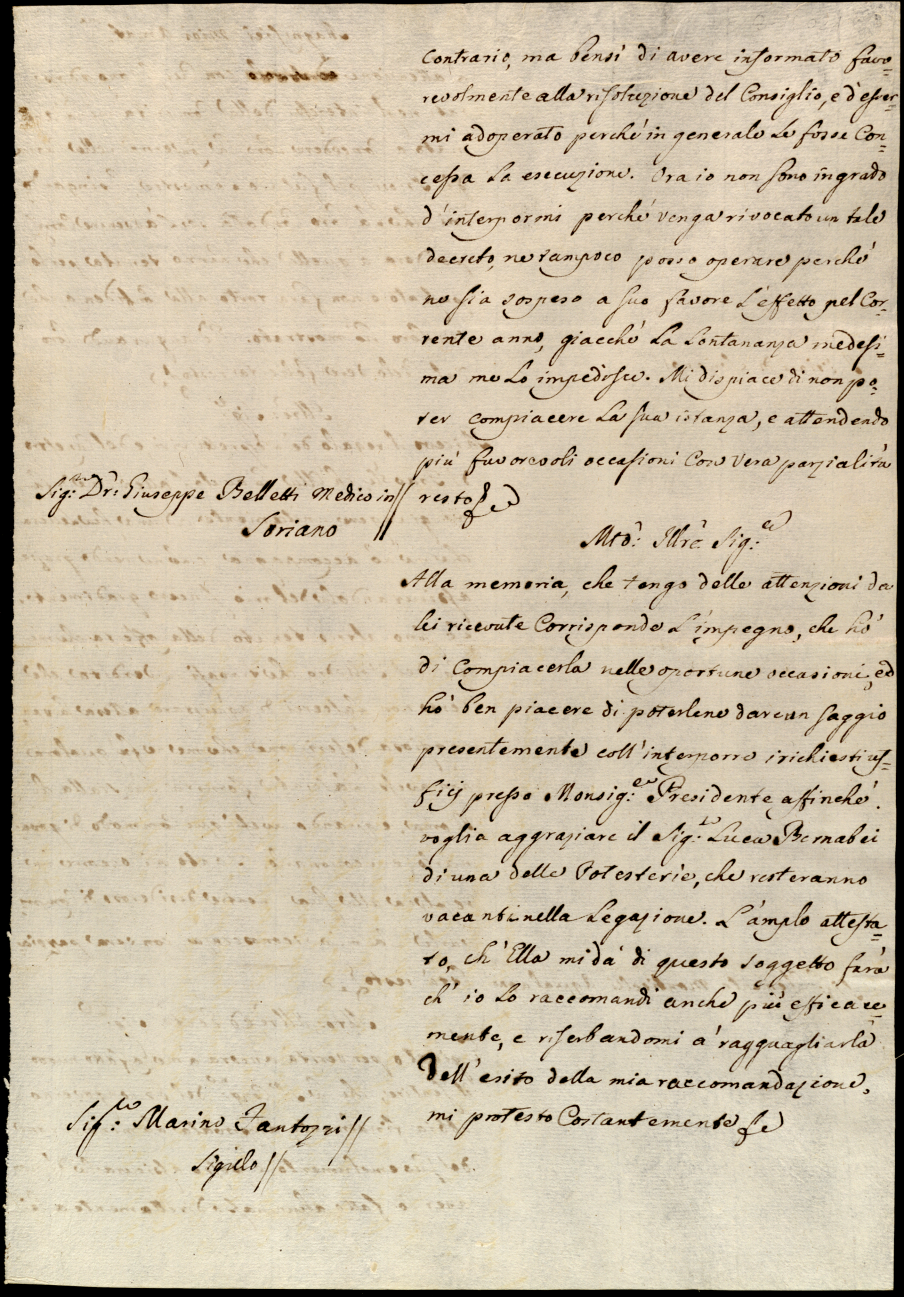 contrario, ma bensì di avere informato favo=
revolmente alla risoluzione del Consiglio, e d'esser=
mi adoperato perché in generale Le fosse Con=
cessa La esecuzione. Ora io non sono in grado
d'interpormi perché venga rivocato un tale
decreto, ne tampoco posso operare perché
ne sia sospeso a suo favore L'effetto pel Cor=
rente anno, giacché La Lontananza medesi=
ma me Lo impedisce. Mi dispiace di non po=
ter compiacere La sua istanza, e attendendo
più favorevoli occasioni Con vera parzialità
resto
Sig.re Dr: Giuseppe Belletti Medico in //
Soriano
Mtõ: Illrẽ Sig:re
Alla memoria, che tengo delle attenzioni da
lei ricevute Corrisponde L'impegno, che hò
di Compiacerla nelle oportune occasioni, ed
hò ben piacere di poterlene dare un saggio
presentemente coll'interporre i richiesti uf=
ficj presso Monsig:re Presidente affinché
voglia aggraziare il Sig:r Luca Bernabei
di una delle Potesterie, che resteranno
vacanti nella Legazione. L'amplo attesta=
to, ch'Ella mi dà di questo soggetto farà
ch'io Lo raccomandi anche più efficace=
mente, e riserbandomi à ragguagliarla
dell'esito della mia raccomandazione,
mi protesto Costantemente
Sig:re Marino Fantozzi //
Sigillo //